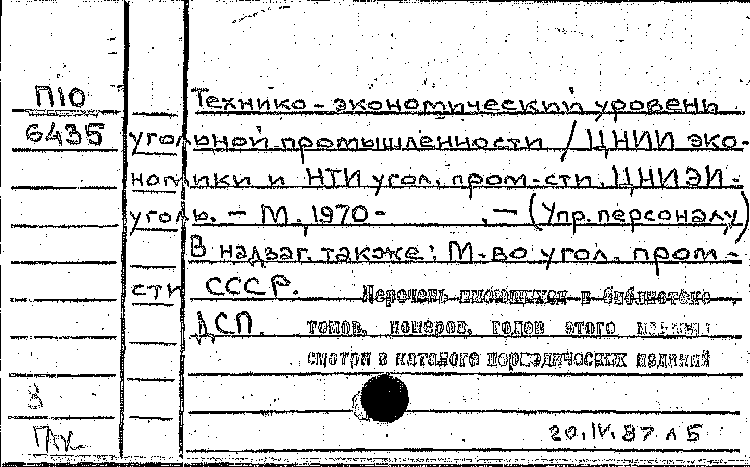 П10
6435
Технико-экономический уровень
угольной промышленности / ЦНИИ эко-
номики и НТИ угол. пром-сти. ЦНИЭИ-
уголь. - М., 1970-          . - (Упр. персоналу)
В надзаг. также: М-во угол. пром-
сти СССР.
Перечень имеющихся в библиотеке
ДСП.
томов, номеров, годов этого издания
смотри в каталоге периодических изданий
20.IV.87 л5